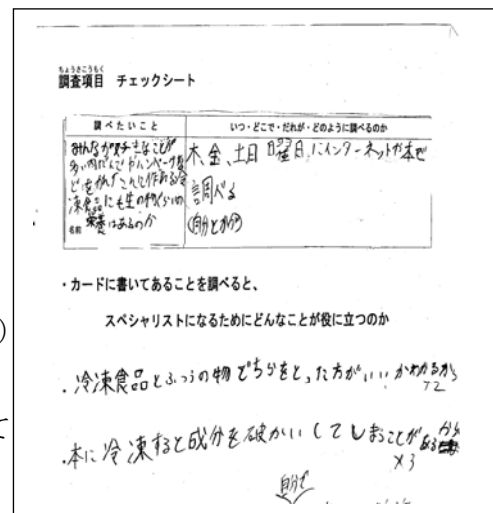 ちょうさこうもく
調査項目 チェックシート
調べたいこと
いつ・どこで・だれが・どのように調べるのか
みんなが好きなことが
多い肉だんごやハンバーグな
凍食品にも生の物くらいの
栄養はあるのか
名前
木、金、土日曜日にインターネットや本で
調べる
・カードに書いてあることを調べると、
スペシャリストになるためにどんなことが役に立つのか
・冷凍食品とふつうの物どちらをとった方がいいかわかるから
・本に冷凍すると成分を破かいしてしまうことがあるから
自分で